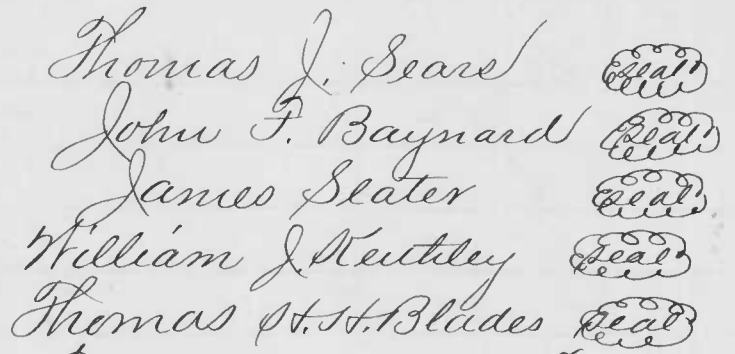 Thomas J. Sears Seal
John F. Baynard Seal
James Slater Seal
William J. Keithley Seal
Thomas H. H. Blades Seal